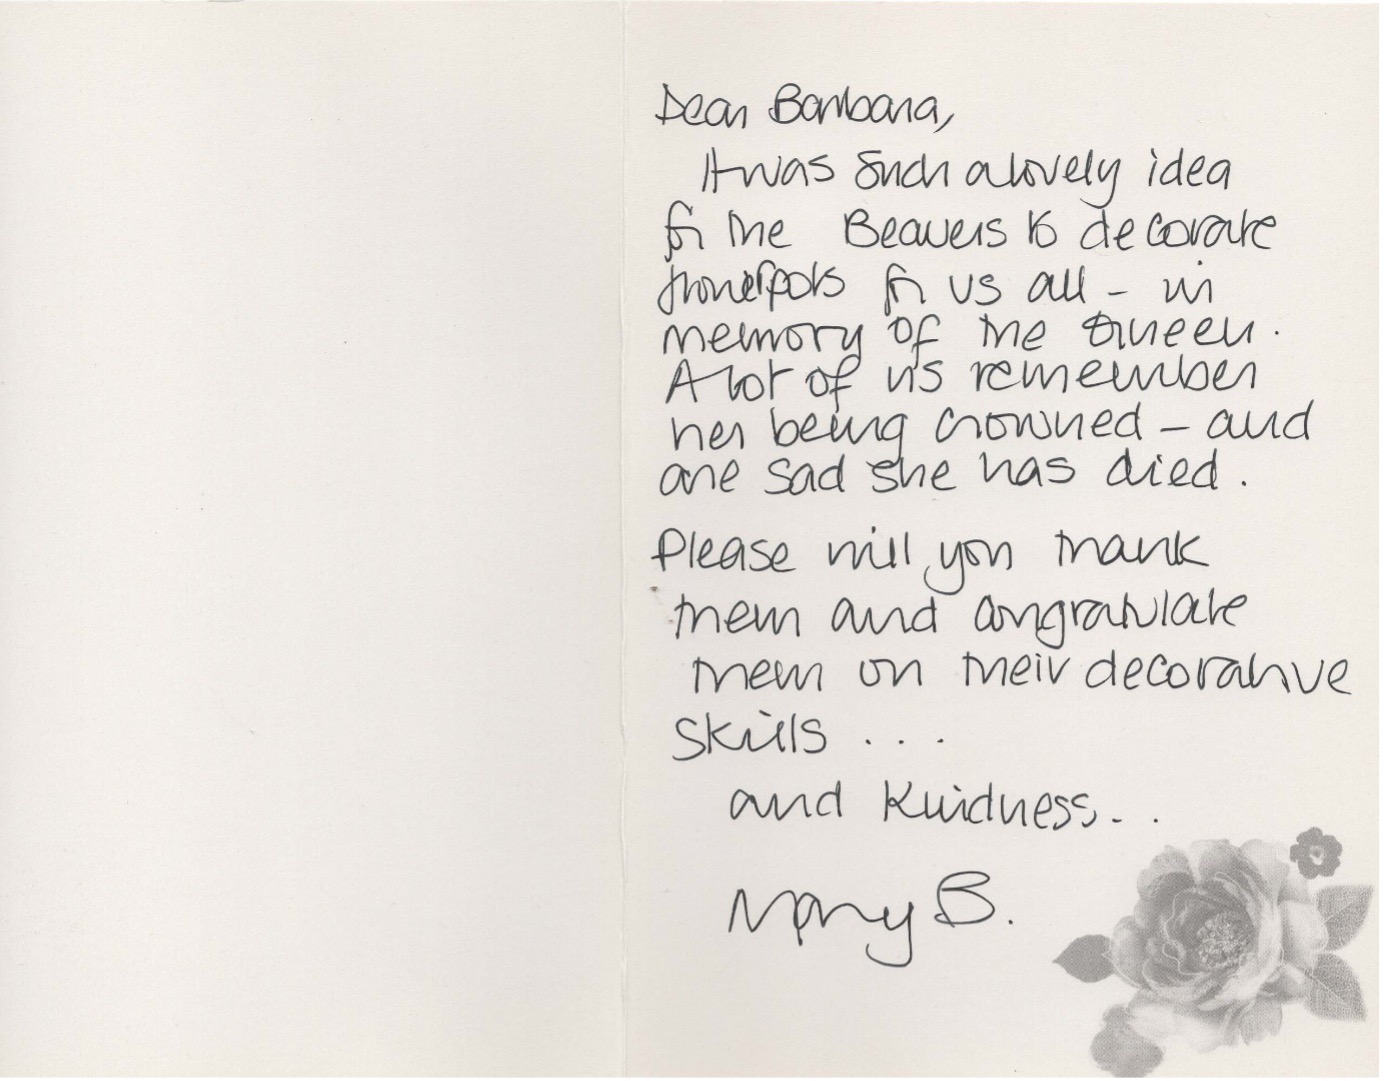 Dear Barbara,
It was such a lovely idea
for the Beavers to decorate
flowerpots for us all – in
memory of the Queen.
A lot of us remember
her being crowned – and
are sad she has died.
Please will you thank
them and congratulate
them on their decorative
skills ...
and kindness..
Mary B.